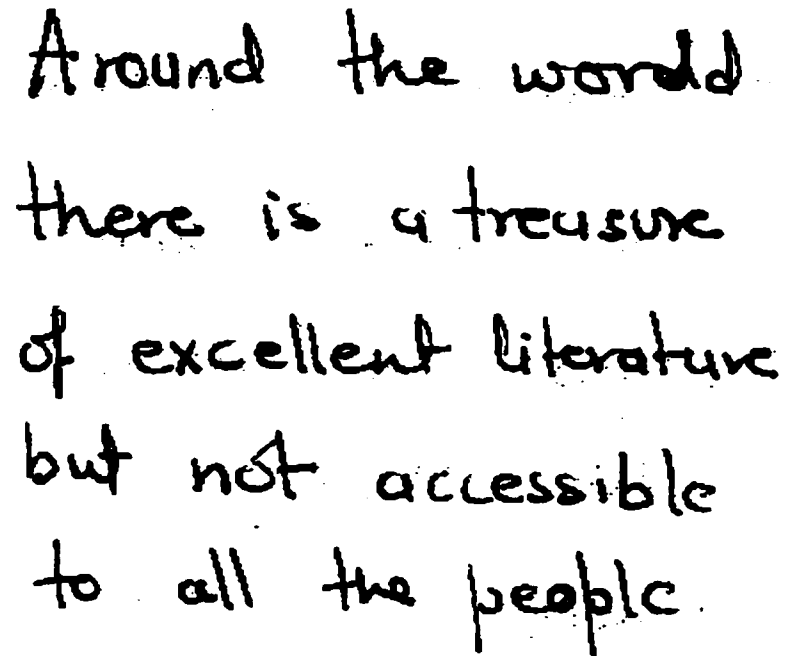 Around the world
there is a treasure
of excellent literature
but not accessible
to all the people.